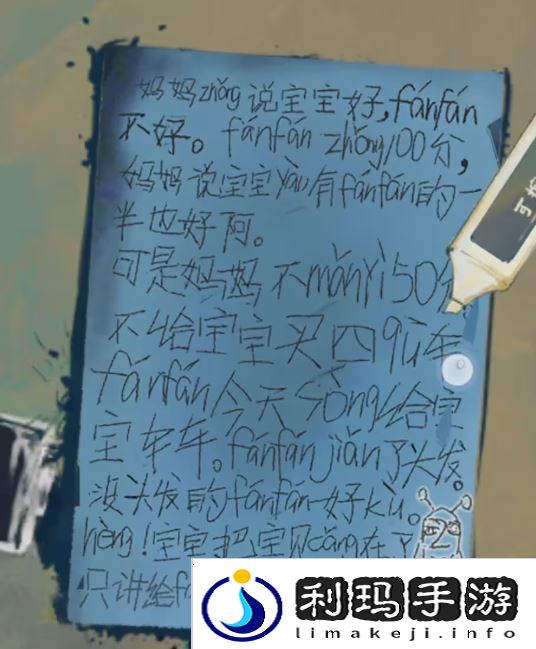 妈妈zhǒng说宝宝好,fánfán
不好。fánfán zhǒng100分,
妈妈说宝宝yào有fánfán的一
半也好阿。
可是妈妈不mǎnyì50分
不给宝宝买四qū车
fánfán今天sòng给宝
宝车车。fánfán jiǎn了头发。
没头发的fánfán好kù。
hèng!宝宝把宝贝cáng在了
只讲给f
利玛手游
limakeji.info